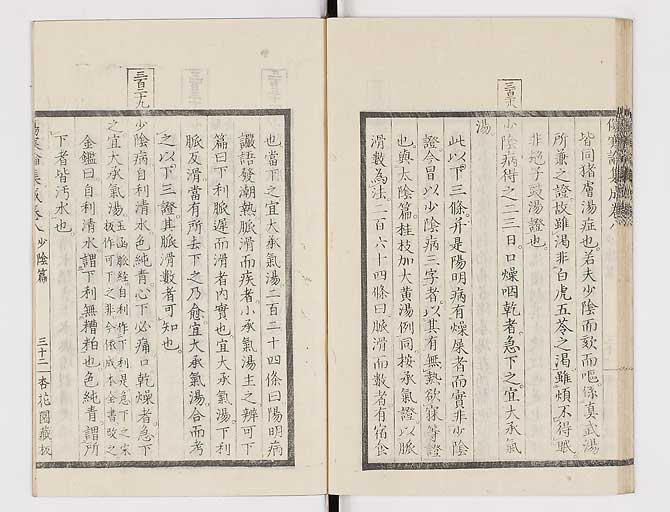 傷寒論集成卷八
皆同猪膚湯症也若夫少陰而欬而嘔係真武湯
所兼之證故雖渴非白虎五苓之渴雖煩不得眠
非梔子豉湯證也
三百十八
少陰病得之二三日口燥咽乾者急下之宜大承氣
湯
此以下三條并是陽明病有燥屎者而實非少陰
證今冒以少陰病三字者以其有無熱欲寐等證
也與太陰篇桂枝加大黃湯例同按承氣證以脈
滑數為法二百六十四條曰脈滑而數者有宿食
也當下之宜大承氣湯二百二十四條曰陽明病
讝語發潮熱脈滑而疾者小承氣湯主之辨可下
篇曰下利脈遲而滑者內實也宜大承氣湯下利
脈反滑當有所去下之乃愈宜大承氣湯合而考
之以下三證其脈滑數者可知也
三百十九
少陰病自利清水色純青心下必痛口乾燥者急下
之宜大承氣湯
玉函脈經自利作下利是急下之宋
板作可下之非今依成本全書改之
金鑑曰自利清水謂下利無糟粕也色純青謂所
下者皆汚水也
傷寒論集成卷八 少陰篇 三十二 杏花園藏板